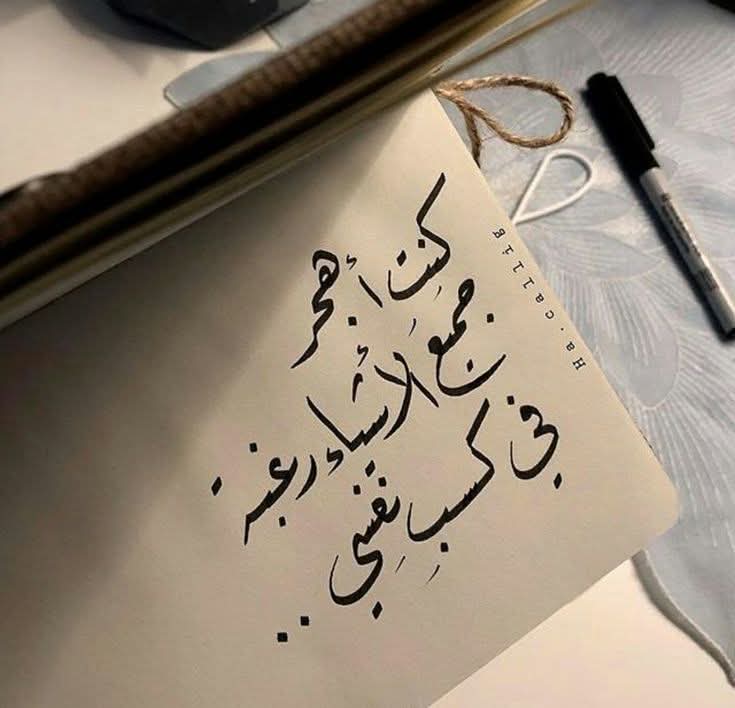 كنت أهجر
جميعَ الأشياء رغبة
في كسبِ نفسِي ..
Ha.callig